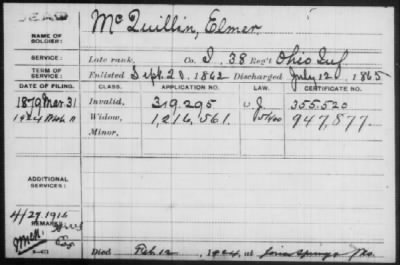 NAME OF SOLDIER: McQuillin, Elmer
SERVICE: Late rank, Co. I, 38 Reg't Ohio Inf
TERM OF SERVICE: Enlisted Sept. 20. 1862 Discharged July 12 1865
DATE OF FILING. CLASS. APPLICATION NO. LAW. CERTIFICATE NO.
1879 Mar 31 Invalid, 319.295 J 355.520
Widow, 1,216,561. 947,877
Minor,
ADDITIONAL SERVICES:
4/29.1916
REMARKS:
Died Feb. 12, 1924, at Springs Mo.